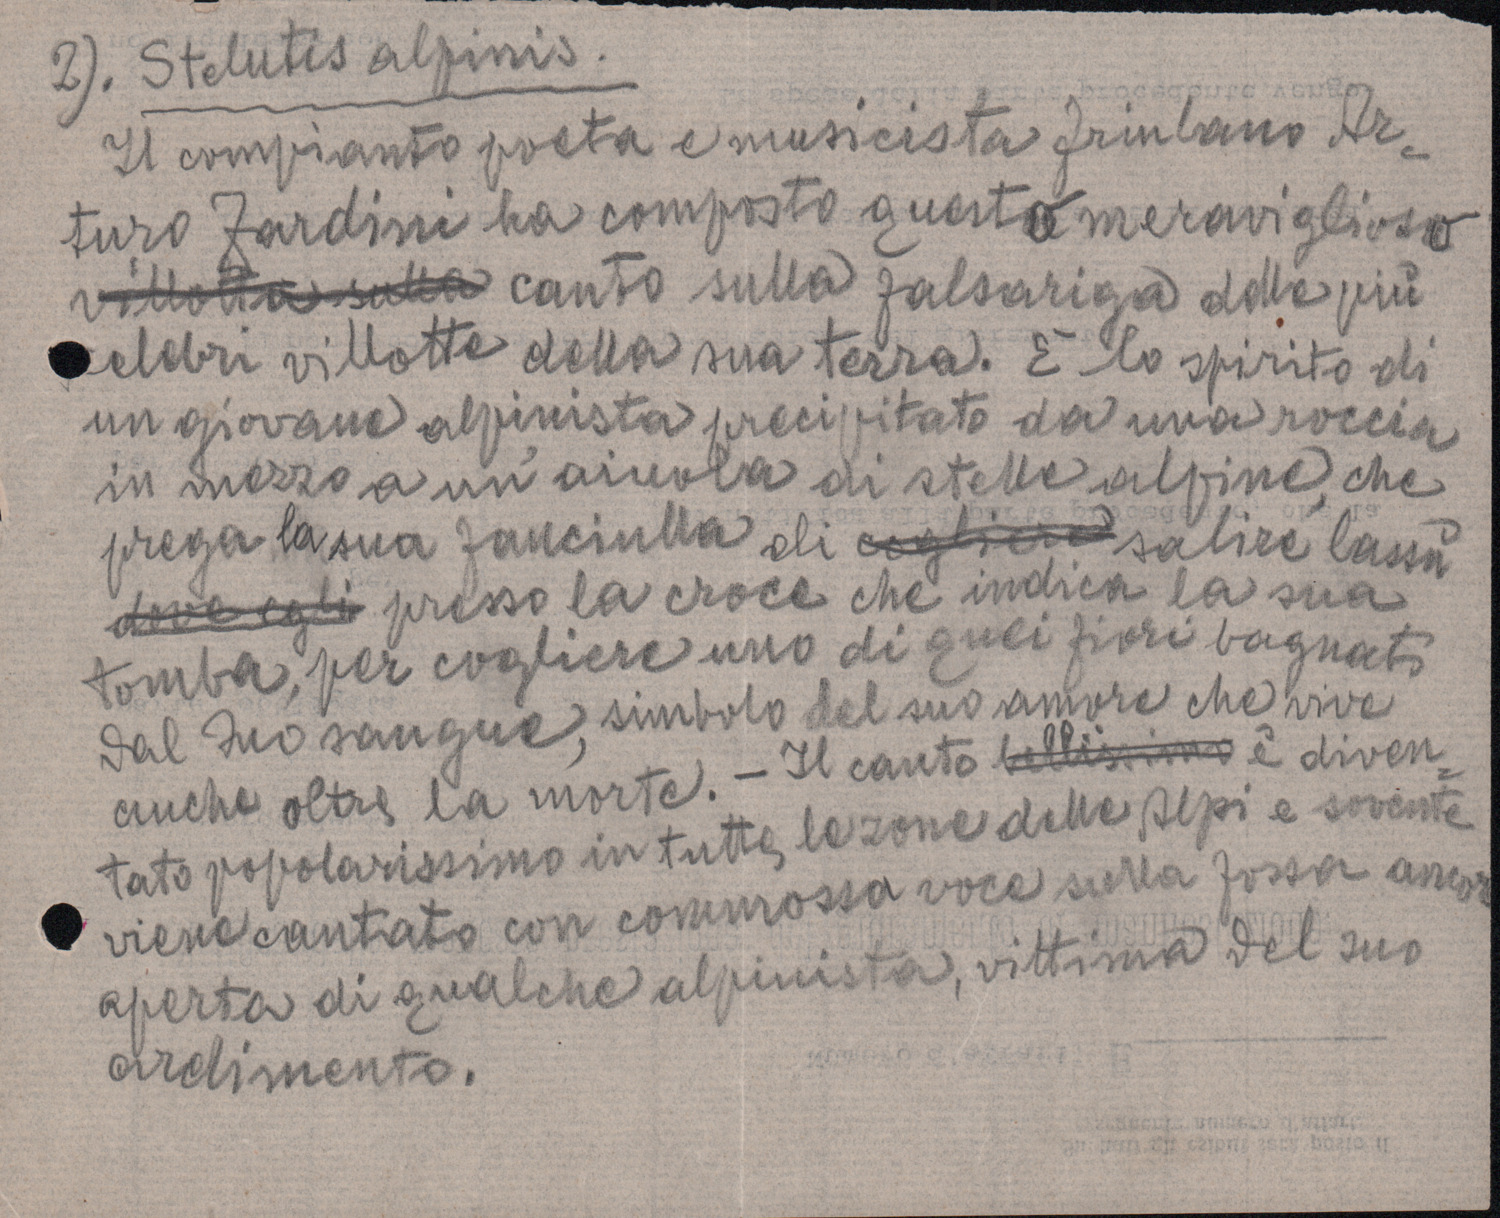 2). Stelutis alpinis.
Il compianto poeta e musicista friulano Ar-
turo Zardini ha composto questo meraviglioso
villotta sulla canto sulla falsariga delle più
celebri villotte della sua terra. È lo spirito di
un giovane alpinista precipitato da una roccia
in mezzo a un'aiuola di stelle alpine, che
prega la sua fanciulla di cogliere salire lassù
dove egli presso la croce che indica la sua
tomba, per cogliere uno di quei fiori bagnati
dal suo sangue, simbolo del suo amore che vive
anche oltre la morte. – Il canto bellissimo è diven-
tato popolarissimo in tutte le zone delle Alpi e sovente
viene cantato con commossa voce sulla fossa ancor
aperta di qualche alpinista, vittima del suo
ardimento.